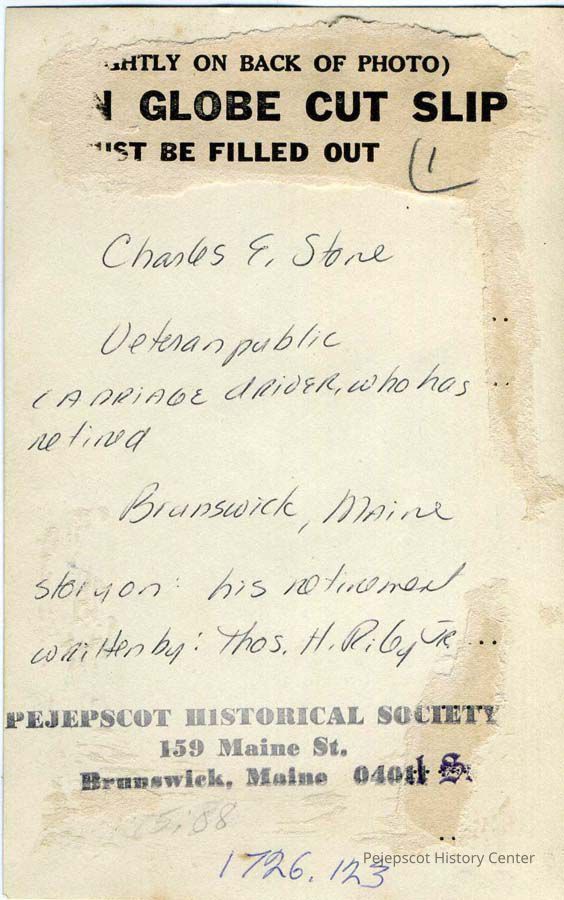 ON BACK OF PHOTO)
GLOBE CUT SLIP
BE FILLED OUT
1
Charles E. Stone
Veteran public
CARRIAGE dRIVER, who has
retired
Brunswick, MAine
story on: his retirement
written by: Thos. H. Riley JR.
PEJEPSCOT HISTORICAL SOCIETY
159 Maine St.
Brunswick, Maine 04011
1726.123
Pejepscot History Center